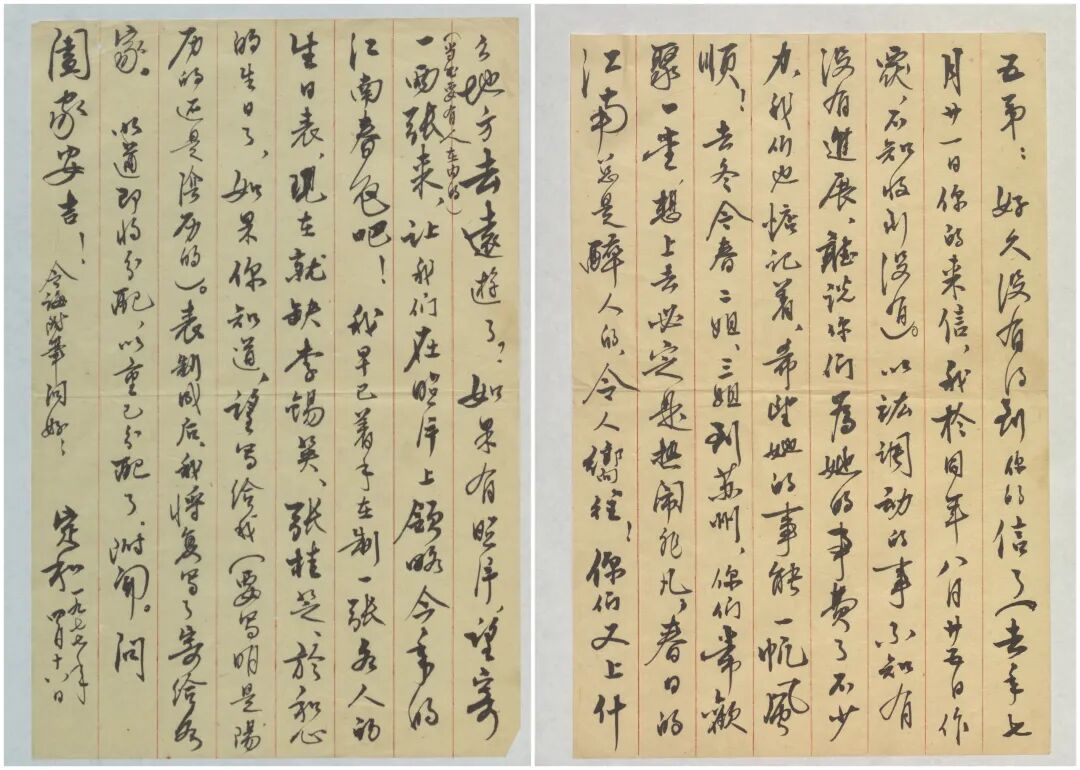 五弟：好久没有得到你的信了（去年七
月廿一日你的来信，我於同年八月廿五日作
答，不知收到没有）。以䇓调动的事不知有
没有進展，聽说你们為她的事費了不少
力，我们也惦记着，希望她的事能一帆風
順！去冬今春二姐、三姐到苏州，你们常歡
聚一堂，想上去必定是热闹非凡，春日的
江南总是醉人的，令人嚮往！你们又上什
么地方去遠遊了？如果有照片，望寄
（当然要有人在内的）
一两张来，让我们在照片上領略今年的
江南春色吧！我早已着手在制一张各人的
生日表，现在就缺李錫英、張桂芝、於和心
的生日了，如果你知道，望写给我（要写明是陽
历的还是阴历的）。表制成后，我将复写了寄给各
家。以道即将分配，以重已分配了，附闻。问
闔家安吉！
令海附筆问好！
定和
一九七七年
四月十六日